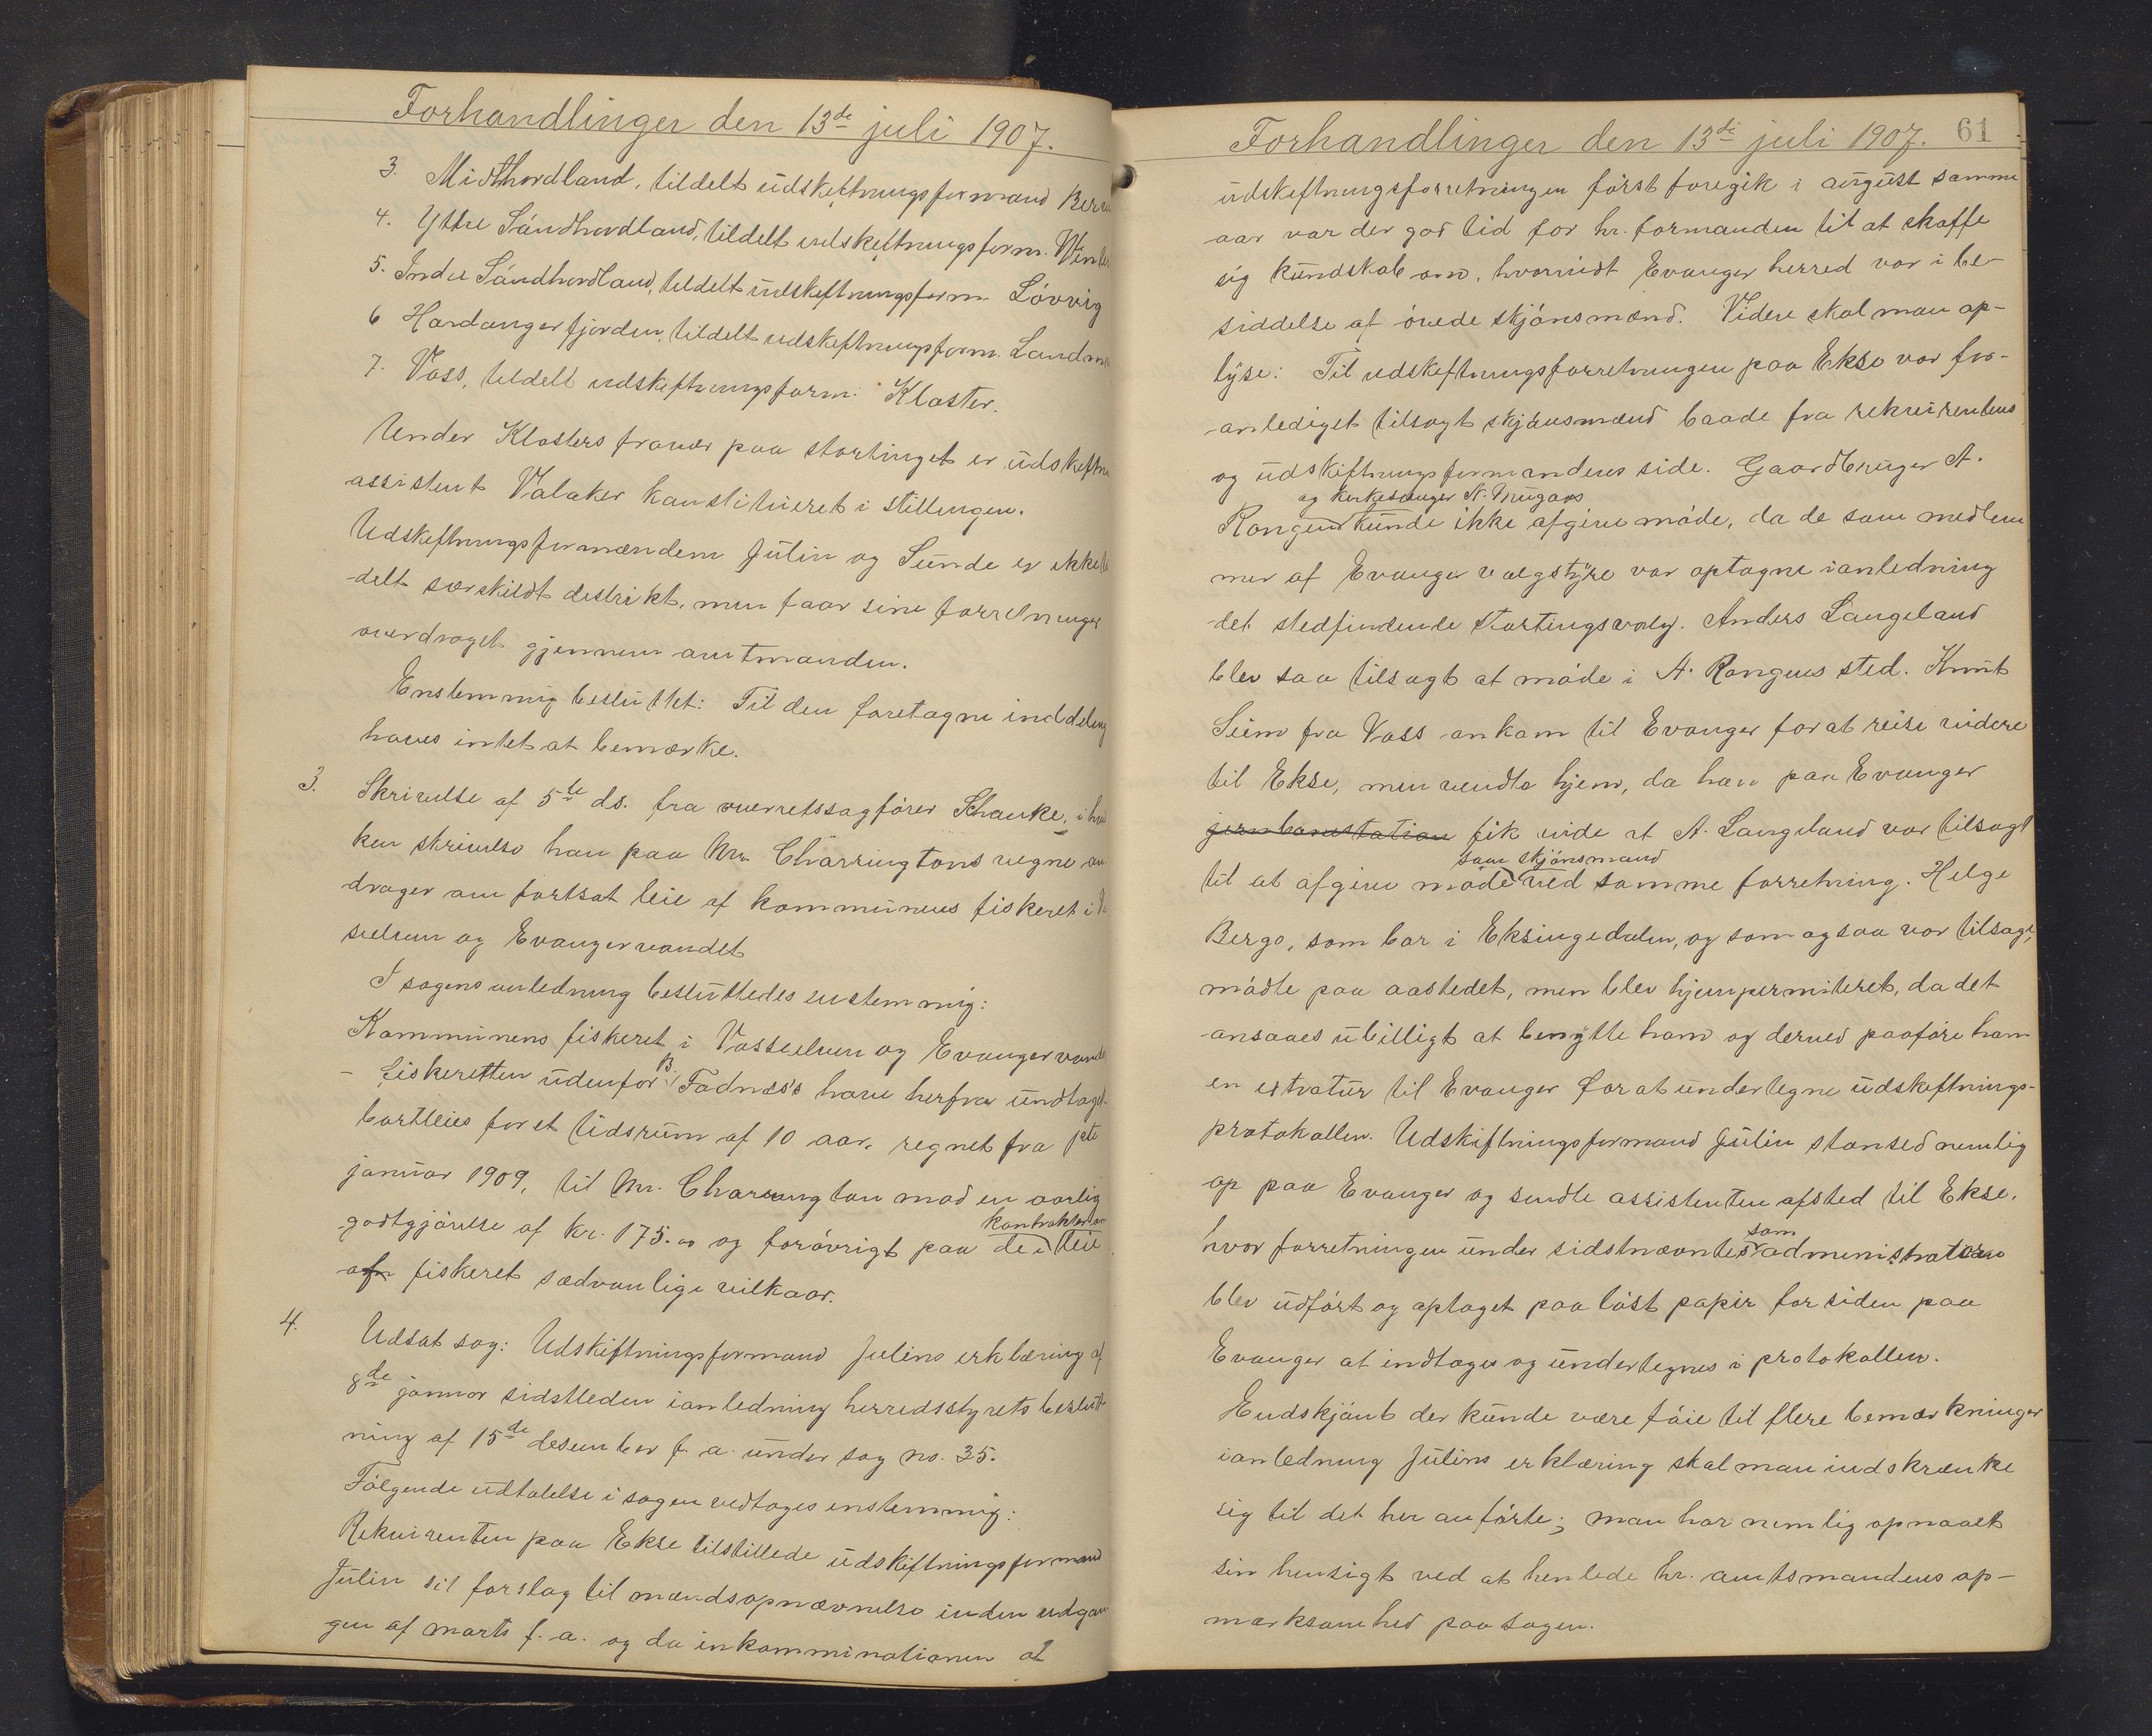 Forhandlinger den 13de juli 1907.
3. Midthordland, tildelt udskiftningsformand
4. Yttre Søndhordland, tildelt udskiftningsform.
5. Indre Søndhordland, tildelt udskiftningsform Løvvig
6 Hardangerfjorden, tildelt udskiftningsform.
7. Voss, tildelt udskiftningsform. Kloster.
Under Klosters fravær paa stortinget er udskiftn
assistent Valaker konstitueret i stillingen.
Udskiftningsformændene Julin og Sunde er ikke
delt særskildt distrikt, men faar sine forretninger
overdraget gjennem amtmanden.
Enstemmig besluttet: Til den foretagne inddeling
haves intet at bemærke.
3. Skrivelse af 5te ds. fra overretssagfører Schanke, i hvil
ken skrivelse han paa Mr. Charringtons vegne an
drager om fortsat leie af kommunens fiskeret i
selven og Evangervandet
I sagens anledning besluttedes enstemmig:
Kommunens fiskeret i Vosseelven og Evangervandet
- fiskeretten udenfor B. Fadnæs's have herfra undtaget-
bortleies for et tidsrum af 10 aar, regnet fra 1ste
januar 1909, til Mr. Charrington mod en aarlig
godtgjørelse af kr. 175.00 og forøvrigt paa de i kontrakter om leie
af fiskeret sædvanlige vilkaar.
4. Udsat sag: Udskiftningsformand Julins erklæring af
8de januar sidstleden ianledning herredsstyrets beslut-
ning af 15de desember f. a. under sag no. 35.
Følgende udtalelse i sagen vedtoges enstemmig:
Rekvirenten paa Ekse tilstillede udskiftningsformand
Julin sit forslag til mandsopnævnelse inden udgan-
gen af marts f. a. og da inkamminationen at
Forhandlinger den 13de juli 1907. 61
udskiftningsforretningen først foregik i august samme
aar var der god tid for hr. formanden til at skaffe
sig kundskab om, hvorvidt Evanger herred var i be-
siddelse af øvede skjønsmænd. Videre skal man op-
lyse: Til udskiftningsforretningen paa Ekse var for-
anlediget tilsagt skjønsmænd baade fra rekvirentens
og udskiftningsformandens side. Gaardbruger A.
og kirkesanger N. Mugaas
Rongen kunde ikke afgive møde, da de som medlem
mer af Evanger valgstyre var optagne ianledning
det stedfindende stortingsvalg. Anders Langeland
blev saa tilsagt at møde i A. Rongens sted. Knut
Seim fra Voss ankom til Evanger for at reise videre
til Ekse, men vendte hjem, da han paa Evanger
jernbanestation fik vide at A. Langeland var tilsagt
som skjønsmand
til at afgive møde ved samme forretning. Helge
Bergo, som bor i Eksingedalen, og som ogsaa var tilsagt,
mødte paa aastedet, men blev hjempermiteret, da det
ansaaes ubilligt at benytte ham og derved paaføre ham
en extratur til Evanger for at undertegne udskiftnings-
protokollen. Udskiftningsformand Julin stansed nemlig
op paa Evanger og sendte assistenten afsted til Ekse,
som
hvor forretningen under sidstnævntes administration
blev udført og optaget paa løst papir for siden paa
Evanger at indtages og undertegnes i protokollen.
Endskjønt der kunde være føie til flere bemærkninger
ianledning Julins erklæring skal man indskrænke
sig til det her anførte; man har nemlig opnaaet
sin hensigt ved at henlede hr. amtsmandens op-
mærksomhed paa sagen.